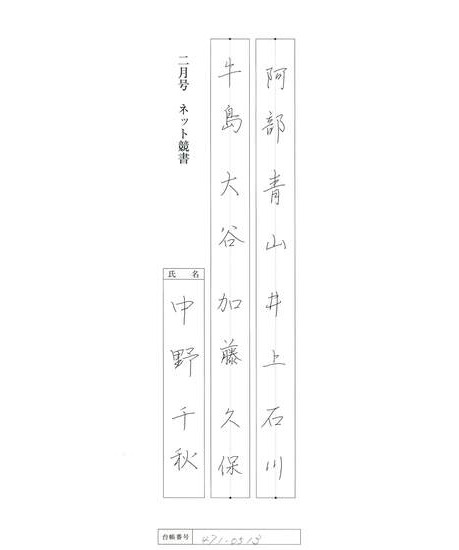 阿部青山井上石川
牛島大谷加藤久保
二月号 ネット競書
氏 名
中野千秋
台帳番号 471-0513